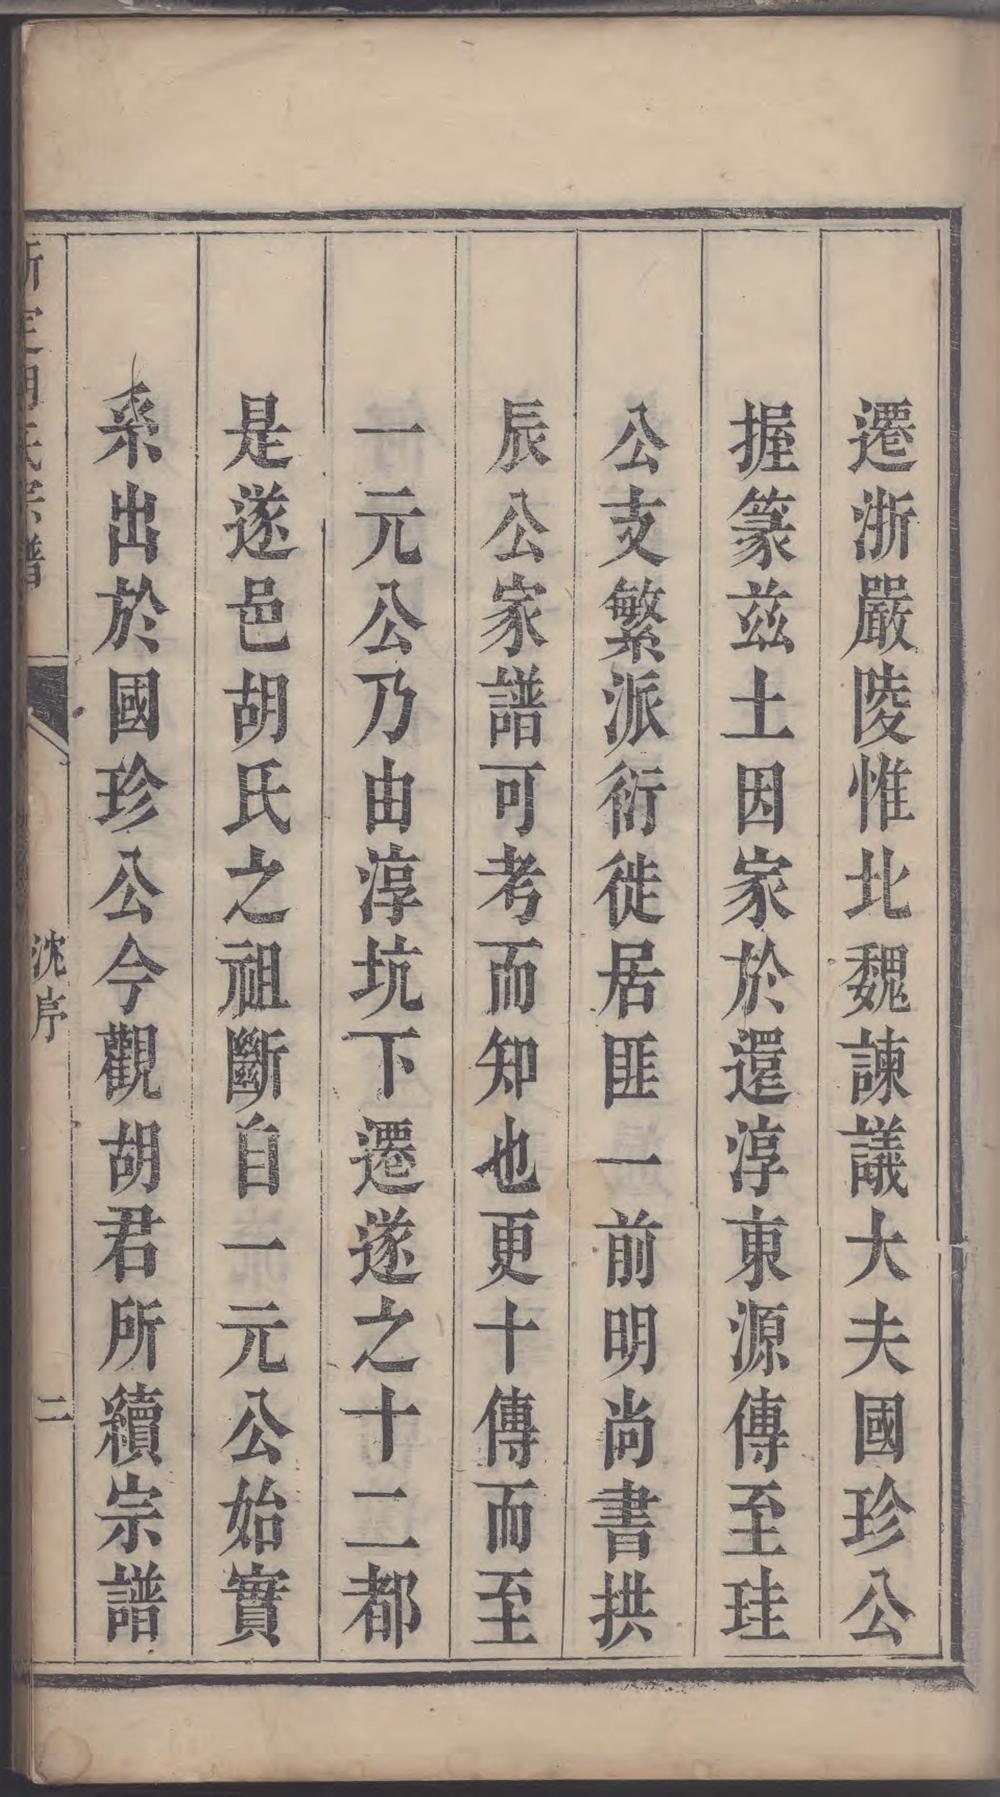 遷浙嚴陵惟北魏諫議大夫國珍公
握篆茲土因家於還淳東源傳至珪
公支繁派衍徙居匪一前明尚書拱
辰公家譜可考而知也更十傳而至
一元公乃由淳坑下遷遂之十二都
是遂邑胡氏之祖斷自一元公始實
系出於國珍公今觀胡君所續宗譜
氏宗譜
沈序
二